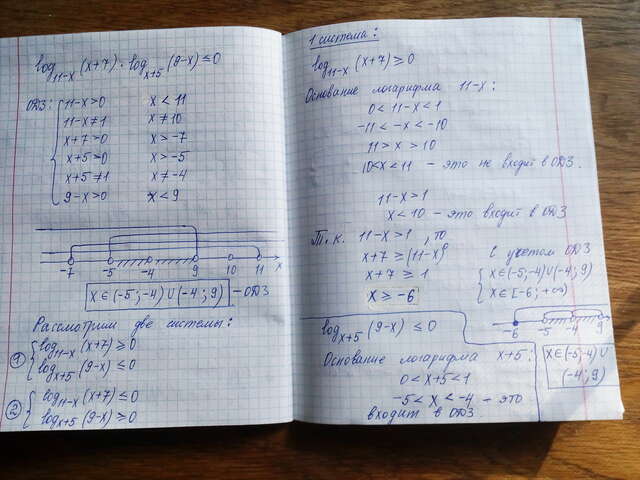 log₁₁₋ₓ (x+7) · logₓ₊₅ (9-x) ≤ 0
ОДЗ: { 11-x>0 x < 11
11-x≠1 x ≠ 10
x+7>0 x > -7
x+5>0 x > -5
x+5≠1 x ≠ -4
9-x>0 x < 9
-7 -5 -4 9 10 11 x
x∈(-5;-4)∪(-4;9) - ОДЗ
Рассмотрим две системы:
① { log₁₁₋ₓ (x+7) ≥ 0
logₓ₊₅ (9-x) ≤ 0
② { log₁₁₋ₓ (x+7) ≤ 0
logₓ₊₅ (9-x) ≥ 0
1 система:
log₁₁₋ₓ (x+7) ≥ 0
Основание логарифма 11-x:
0 < 11-x < 1
-11 < -x < -10
11 > x > 10
10<x<11 - это не входит в ОДЗ.
11-x > 1
x < 10 - это входит в ОДЗ
Т.к. 11-x > 1, то
x+7 ≥ (11-x)⁰
x+7 ≥ 1
x ≥ -6
С учетом ОДЗ
{ x∈(-5;-4)∪(-4;9)
x∈[-6; +∞)
-6 -5 -4 9
x∈(-5;-4)∪
(-4;9)
logₓ₊₅ (9-x) ≤ 0
Основание логарифма x+5:
0 < x+5 < 1
-5 < x < -4 - это
входит в ОДЗ